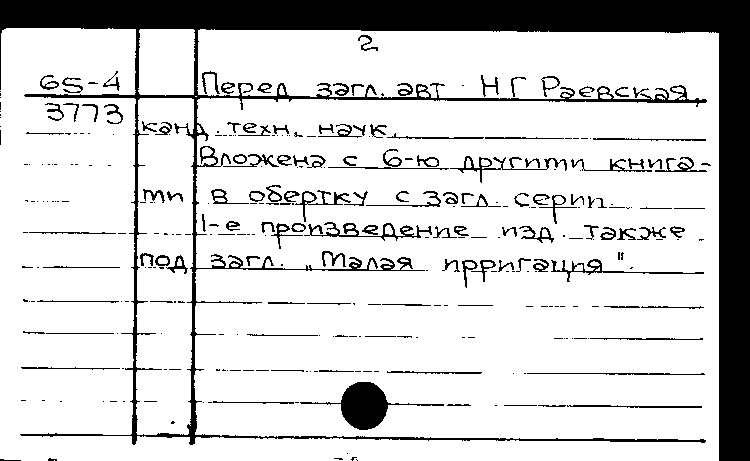 2
65-4 Перед загл. авт. Н Г Раевская,
3773 канд. техн. наук.
Вложена с 6-ю другими книга-
ми в обертку с загл. серии.
1-е произведение изд. также
под загл. "Малая ирригация".